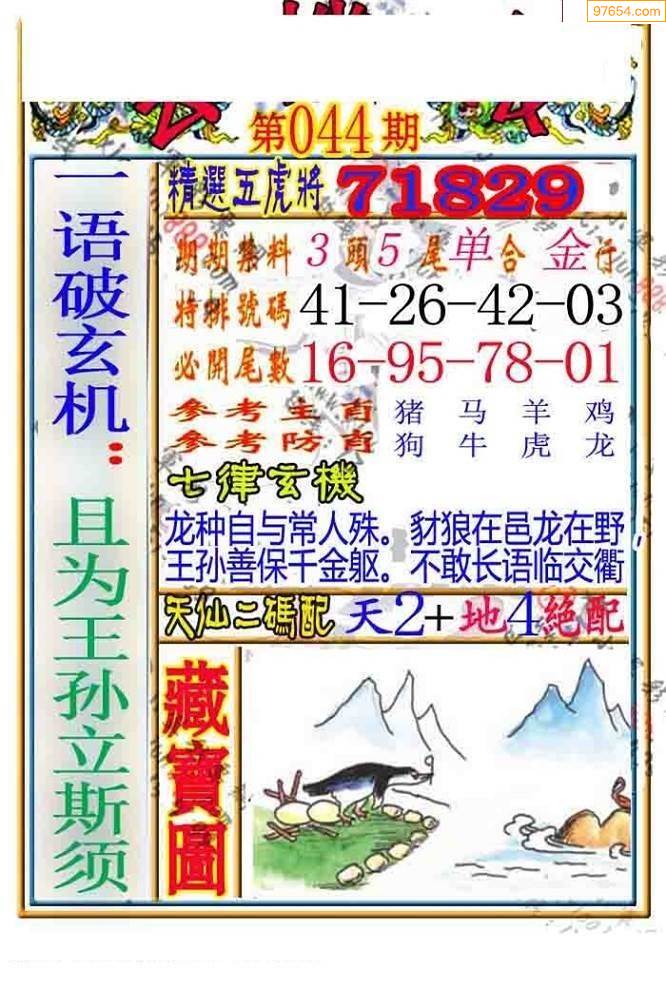 97654.com
第044期
一语破玄机：且为王孙立斯须
精選五虎將 71829
期期禁料 3 頭 5 尾 单 合 金 行
特排號碼 41-26-42-03
必開尾數 16-95-78-01
参考主肖 猪 马 羊 鸡
参考防肖 狗 牛 虎 龙
七律玄機
龙种自与常人殊。豺狼在邑龙在野，
王孙善保千金躯。不敢长语临交衢
天仙二碼配 天2+地4絕配
藏寶圖